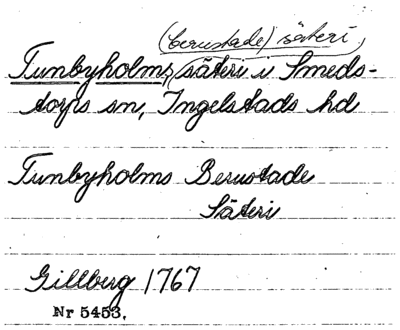 (berustade) säteri,
Tunbyholms, säteri i Smeds-
torps sn, Ingelstads hd
Tunbyholms Berustade
Säteri
Gillberg 1767
Nr 5453,